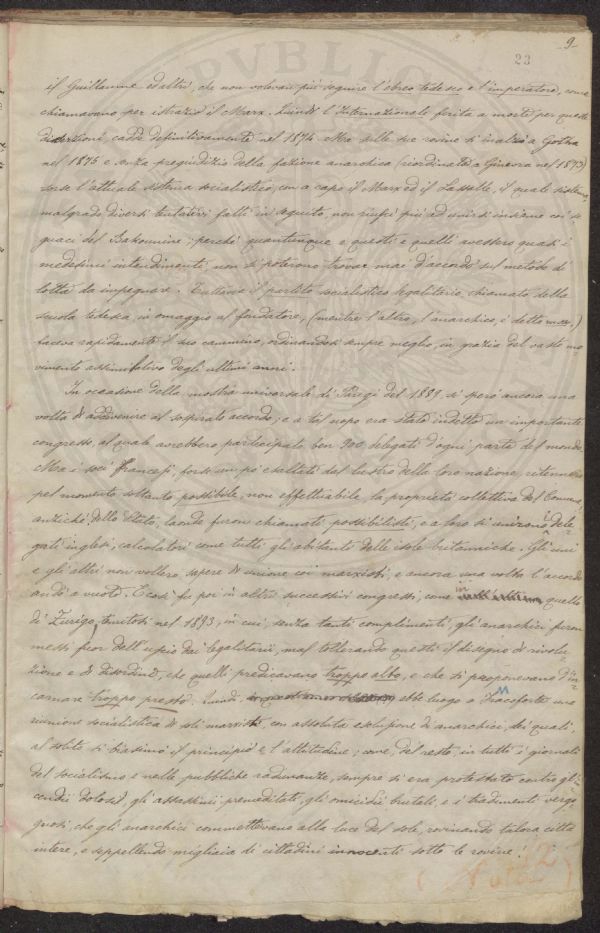 9
23
il Guillaume ed altri, che non volevan più seguire l'ebreo tedesco e l'imperatore, come
chiamavano per istrazio il Marx. Quindi l'Internazionale ferita a morte per queste
diserzioni, cadde definitivamente nel 1874. Ma sulle sue rovine s'inalzò a Gotha
nel 1875 e senza pregiudizio della fazione anarchica (riordinata a Ginevra nel 1873)
sorse l'attuale sistema socialistico, con a capo il Marx ed il Lassalle, il quale sistema,
malgrado diversi tentativi fatti in seguito, non riuscì più ad unirsi insieme coi se-
guaci del Bakounine; perchè quantunque e questi e quelli avessero quasi i
medesimi intendimenti, non si poterono trovar mai d'accordo sul metodo di
lotta da impegnare. Tuttavia il partito socialistico legalitario, chiamato della
scuola tedesca in omaggio al fondatore, (mentre l'altro, l'anarchico, è detto
faceva rapidamente il suo cammino, ordinandosi sempre meglio, in grazia del vasto mo-
vimento assimilativo degli ultimi anni.
In occasione della mostra universale di Parigi del 1889 si sperò ancora una
volta di addivenire al sospirato accordo; e a tal uopo era stato indetto un importante
congresso, al quale avrebbero participato ben 900 delegati d'ogni parte del mondo.
Ma i soci francesi, forse un po' esaltati dal lustro della loro nazione, ritennero
pel momento soltanto possibile, non effettuabile, la proprietà collettiva del Comune,
anzichè dello Stato, laonde furon chiamati possibilisti, e a loro si unirono i dele-
gati inglesi, calcolatori come tutti gli abitanti delle isole britanniche. Gli uni
e gli altri non vollero sapere di unione coi marxisti, e ancora una volta l'accordo
andò a vuoto. E così fu poi in altri successivi congressi, come in quello
di Zurigo, tenutosi nel 1893, in cui, senza tanti complimenti, gli anarchici furon
messi fuor dell'uscio dai legalitarii, mal tollerando questi il disegno di rivolu-
zione e di disordine, che quelli predicavano troppo alto, e che si proponevano d'in-
carnare troppo presto. Quindi ebbe luogo a Francoforte una
riunione socialistica di soli marxisti con assoluta esclusione di anarchici, dei quali,
al solito si biasimò il principio e l'attitudine; come, del resto, in tutti i giornali
del socialismo e nelle pubbliche radunanze, sempre si era protestato contro gl'in-
cendii dolosi, gli assassinii premeditati, gli omicidii brutali, e i tradimenti vergo-
gnosi, che gli anarchici commettevano alla luce del sole, rovinando talora città
intere, e seppellendo migliaia di cittadini innocenti sotto le rovine.
(Nota 2)